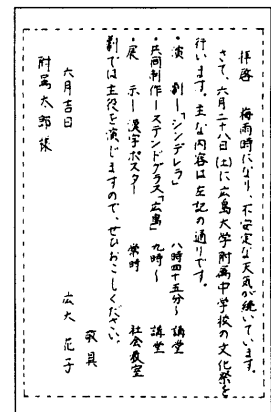 拝啓 梅雨時になり、不安定な天気が続いています。
さて、六月二十八日(土)に広島大学附属中学校の文化祭を
行います。主な内容は左記の通りです。
・演劇―「シンデレラ」 八時四十五分〜 講堂
・共同制作―ステンドグラス「広島」 九時〜 講堂
・展示―漢字ポスター 常時 社会教室
劇では主役を演じますので、ぜひおこしください。
敬具
六月吉日
広大花子
附属太郎様